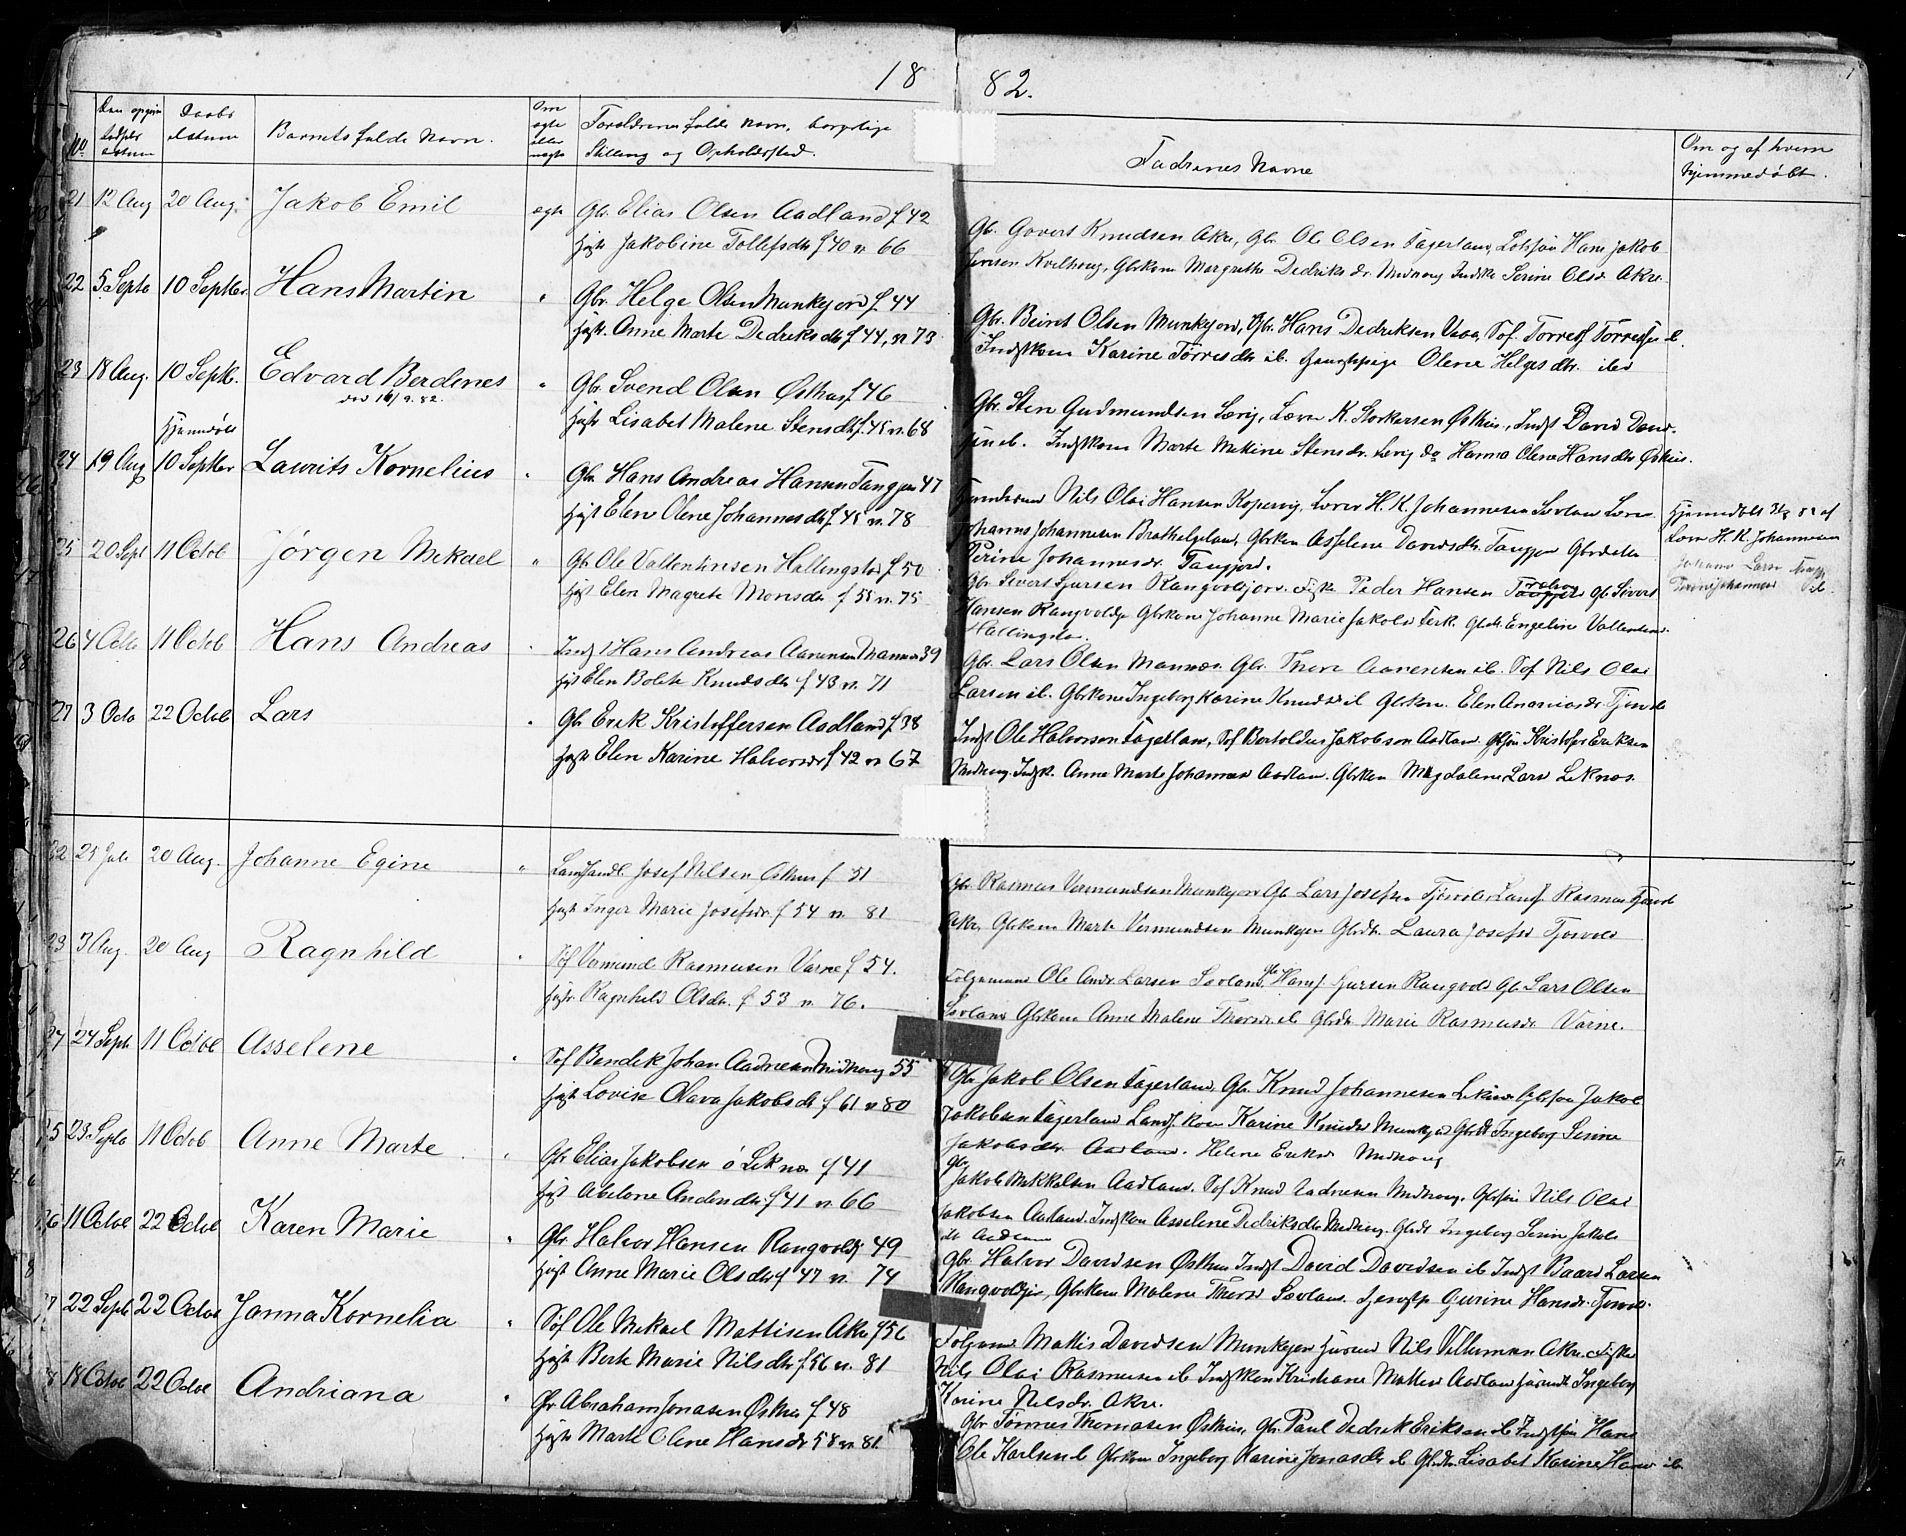 18 82.
No Den opgivne fødsels datum
Daabs datum
Barnets fulde Navn.
Om ægte eller uægte
Forældrenes fulde Navn, borgerlige Stilling og Opholdssted.
Fadrenes Navne
Om og af hvem hjemmedøbt.
21 12 Aug 20 Aug. Jakob Emil ægte Gbr. Elias Olsen Aadland f 42
Hust Jakobine Tollefsdtr f 40 v. 66
Gb. Govert Knudsen Akre, Gbr. Ole Olsen Fagerland, Hans Jakob
Jensen Kvilhaug, Gbrkone Margrethe Dedriksdr. Medhaug Indstke Serine Olsd Akre.
22 5 Septb 10 Septbr. Hans Martin " Gbr. Helge Olsen Munkejord f. 44
Hustr. Anne Marte Dedriksdtr f 44, v. 73
Gbr. Beint Olsen Munkejord, Gbr. Hans Dedriksen Vaa,
Indstkone Karine Tørresdtr ib. Olene Helgesdtr. ibd
23 18 Aug. 10 Septb. Edvard Berdines " Gbr. Svend Olsen Østhus f. 46
død 16/9 82.
Hustr Lisabet Malene Stensdtr f. 45 v. 68
Gbr. Sten Gudmundsen Sævig, Lærer K. Storkersen Østhus, Indst David David-
sen ib. Indstkone Marte Mekine Stensdr. Sevig do Hanna Olene Hansdtr Østhus.
Hjemmedøbt
24 19 Aug 10 Septbr Laurits Kornelius " Gbr. Hans Andreas Hansen Tangjer 47
Hust Elene Olene Johannesdtr f. 45 v. 78
Nils Olai Hansen Kopervig, Lærer H. K. Johannesen Sævland Lærer
Johannes Johannesen Brathelgeland, Gbrkon Asselene Davidsdtr. Tangjer Gbrdatter
Serine Johannesdr. Tangjerd.
Hjemmedøbt 3/9 82 af
Lærer H. K. Johannesen
25 20 Sept 11 Octob Jørgen Mekael " Gb Ole Valtentinsen Hallingstad f. 50
Hust Elen Magrete Monsdtr f 55 v. 75
Gbr. Sivert Sjursen Rangvoldsjord. Fiske Peder Hansen Gb Sivert
Hansen Rangvoldsj Gbrkone Johanne Marie Jakobsd Gbdr. Engeline Vallentins.
Hallingsta.
26 4 Octo 11 Octob Hans Andreas " Indst Hans Andreas Aanensen Mannes 39
Hust Elen Bolete Knudsdtr f 43 v. 71
Gbr. Lars Olsen Mannes. Gbr. Thore Aanensen ib. Søf Nils Olai
Larsen ib. Gbrkone Ingeborg Karine Knudsd ib Gbrkon. Elen Ananiasdr.
27 3 Octo 22 Octob Lars " Gbr Erik Kristoffersen Aadland f. 38
Hust Elen Karine Halvorsdr f 42 v 67
Indst Ole Halvorsen Fagerland, Søf Bertoldus Jakobsen Aadland Gbsøn Kristofer Eriksen
Medhaug, Indstk. Anne Marte Johannesd Aadland. Gbrkon Magdalene Larsd Leknes.
22 25 Juli 20 Aug. Johanne Egine " Landhandl Josef Nilsen Østhus f 51
Hust Inger Marie Josefsdr. f 54 v. 81
Gbr. Rasmus Vermundsen Munkejord Gb Lars Josefsen Rasmus
Akre Gbrkone Marte Vermundsen Munkejor Gbdtr. Laura Josefsd
23 3 Aug. 20 Aug Ragnhild " Søf Vermund Rasmusen Varne f 54.
Hustr Ragnhild Olsdtr. f 53 v. 76.
Ole Andr. Larsen Sævland Hans Sjursen Rangvolds Gb. Lars Olsen
Sævland Gbrkone Anne Malene Thorsd ib Gbrdt Marie Rasmusdr Varne.
24 Sept. 11 Octob Asselene " Søf Bendik Johan Aadnesen Midhaug 55
Hust Lovise Olava Jakobsdtr f 61 v 80
Gbr Jakob Olsen Fagerland, Gb. Knud Johannesen Gbsøn Jakob
Jakobsen Fagerland Landh. kon Karine Knudsd Munkejor Gbrdt Ingeborg Serine
Jakobsdtr. Aadland. Helene Eriksd Midhaug
25 23 Septb 11 Octob Anne Marte " Gbr Elias Jakobsen Ø Leknes f 41
Hust Abelone f 41 v. 66
Gbr. Jakob Mikkelsen Aadland. Søf Knud Aadnesen Midhaug, Gbrsøn Nils Olai
Jakobsen Aadland. Indstkon Asselene Dedriksdtr Medhaug. Gbdt Ingeborg Serin Jakobs
dt Aadland
26 11 Octob 22 Octob Karen Marie " Gbr Halvor Hansen Rangvoldsj 49
Hust Anne Marie Olsdtr f 47 v. 74
Gbr Halvor Davidsen Østhus Indst David Davidsen ib Indst Baard Larsen
Rangvoldsjor, Gbrkone Malene Thorsd Sævland. Gurine Hansdr.
22 Septb 22 Octob Janna Kornelia " Søf Ole Mekael Mattisen Akre f 56
Hust Berte Marie Nilsdtr f. 56 v. 81
Mattis Davidsen Munkejor Nils Villumsen Akre. Fiske
Nils Olai Rasmusen ib Indstkon Kristiane Mattisd Aadland Ingeborg
Karine Nilsdr. Akre.
18 Octob 22 Octob Andriana " Gbr Abraham Jonasen Østhus f. 48
Hustr Marte Olene Hansdr 58 v. 81.
Gbr Tørres Thomasen Østhus, Gbr. Paul Dedrik Eriksen ib Indstsøn Hans
Ole Karlsen ib Gbrkone Ingeborg Karine Jonasdtr ib Gbdtr Lisabet Karine Hansd ib